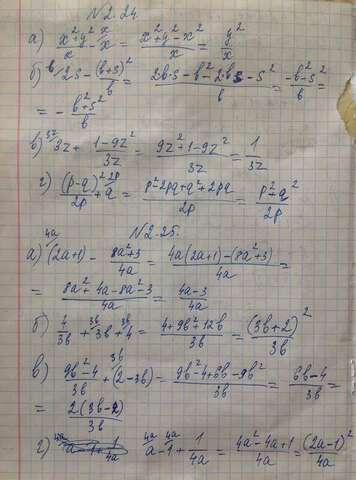 N 2.24.
а) (x²+y²)/x - x = (x²+y²-x²)/x = y²/x
б) 2s - (b+s)²/b = (2b·s-b²-2bs-s²)/b = (-b²-s²)/b =
= - (b²+s²)/b
в) 3z + (1-9z²)/3z = (9z²+1-9z²)/3z = 1/3z
г) (p-q)²/2p + q = (p²-2pq+q²+2pq)/2p = (p²+q²)/2p
N 2.25.
а) (2a+1) - (8a²+3)/4a = (4a(2a+1)-(8a²+3))/4a =
= (8a²+4a-8a²-3)/4a = (4a-3)/4a
б) 4/3b + 3b + 4 = (4+9b²+12b)/3b = (3b+2)²/3b
в) (9b²-4)/3b + (2-3b) = (9b²-4+6b-9b²)/3b = (6b-4)/3b =
= 2(3b-2)/3b
г) a-1+1/4a a-1+1/4a = (4a²-4a+1)/4a = (2a-1)²/4a